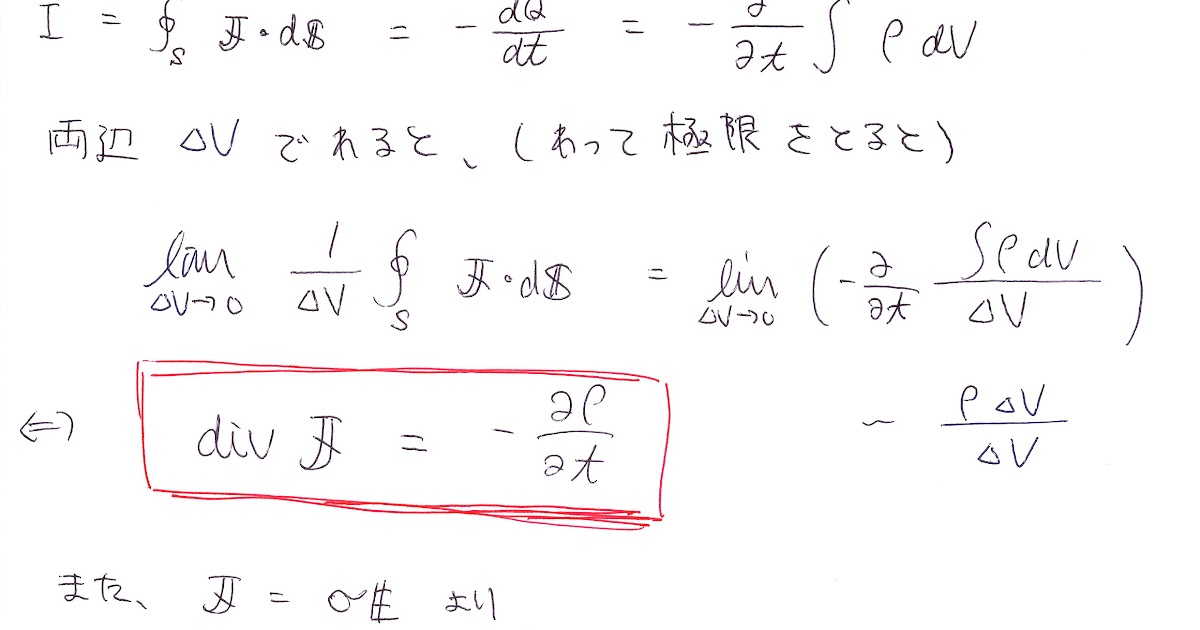 I = ∮_S 𝕁・d𝕊 = - dQ/dt = - ∂/∂t ∫ ρ dV
両辺 ΔV でわると、(わって極限をとると)
lim_{ΔV→0} 1/ΔV ∮_S 𝕁・d𝕊 = lim_{ΔV→0} ( - ∂/∂t ∫ρdV/ΔV )
⇔ div 𝕁 = - ∂ρ/∂t ~ ρΔV/ΔV
また、 𝕁 = σ𝔼 より